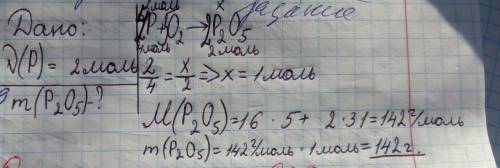 задание
Дано:
ν(P) = 2 моль
m(P₂O₅) - ?
2 моль x
4P + O₂ → 2P₂O₅
4 моль 2 моль
2/4 = x/2 => x = 1 моль
M(P₂O₅) = 16 · 5 + 2 · 31 = 142 г/моль
m(P₂O₅) = 142 г/моль · 1 моль = 142 г.